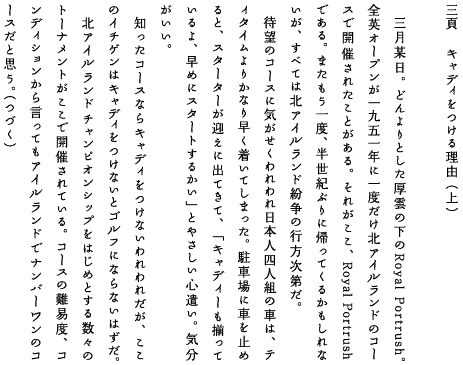 三頁　キャディをつける理由（上）
三月某日。どんよりとした厚雲の下のRoyal Portrush。
全英オープンが一九五一年に一度だけ北アイルランドのコー
スで開催されたことがある。それがここ、Royal Portrush
である。またもう一度、半世紀ぶりに帰ってくるかもしれな
いが、すべては北アイルランド紛争の行方次第だ。
待望のコースに気がせくわれわれ日本人四人組の車は、テ
ィタイムよりかなり早く着いてしまった。駐車場に車を止め
ると、スターターが迎えに出てきて、「キャディーも揃って
いるよ、早めにスタートするかい」とやさしい心遣い。気分
がいい。
知ったコースならキャディをつけないわれわれだが、ここ
のイチゲンはキャディをつけないとゴルフにならないはずだ。
北アイルランドチャンピオンシップをはじめとする数々の
トーナメントがここで開催されている。コースの難易度、コ
ンディションから言ってもアイルランドでナンバーワンのコ
ースだと思う。（つづく）